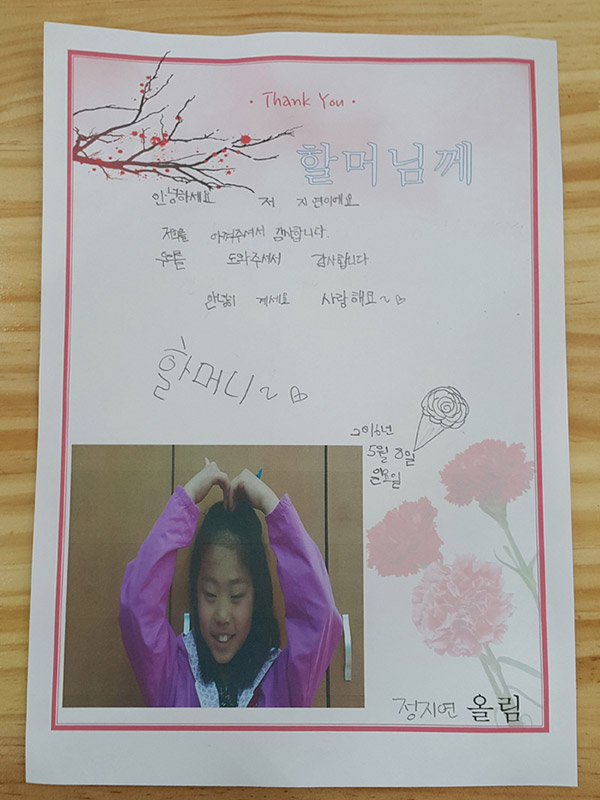 · Thank You ·
할머님께
안녕하세요 저 지연이에요
저희를 아껴주셔서 감사합니다.
우리를 도와주셔서 감사합니다
안녕히 계세요 사랑해요~
할머니~
2016년
5월 8일
일요일
정지연 올림